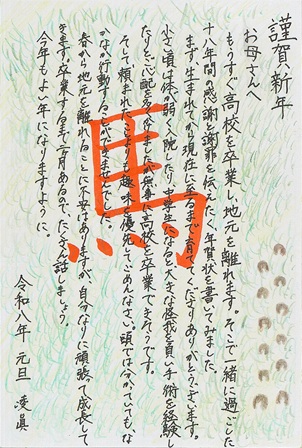 謹賀新年
お母さんへ
もうすぐ高校を卒業し地元を離れます。そこで一緒に過ごした
十八年間の感謝と謝罪を伝えたく年賀状を書いてみました。
まず、生まれてから現在に至るまで育ててくださりありがとうございます。
小さい頃は体が弱く入院したり、中学生になると大きな怪我を負い手術を経験し
たりと心配を多くかけましたが無事に高校を卒業できそうです。
そして頼まれたことよりも趣味を優先してごめんなさい。頭では分かっていても、な
かなか行動することができませんでした。
春から地元を離れることに不安はありますが、自分なりに頑張って成長して
きます。卒業するまで二ヶ月あるので、たくさん話しましょう。
今年もよい年になりますように。
令和八年 元旦
馬